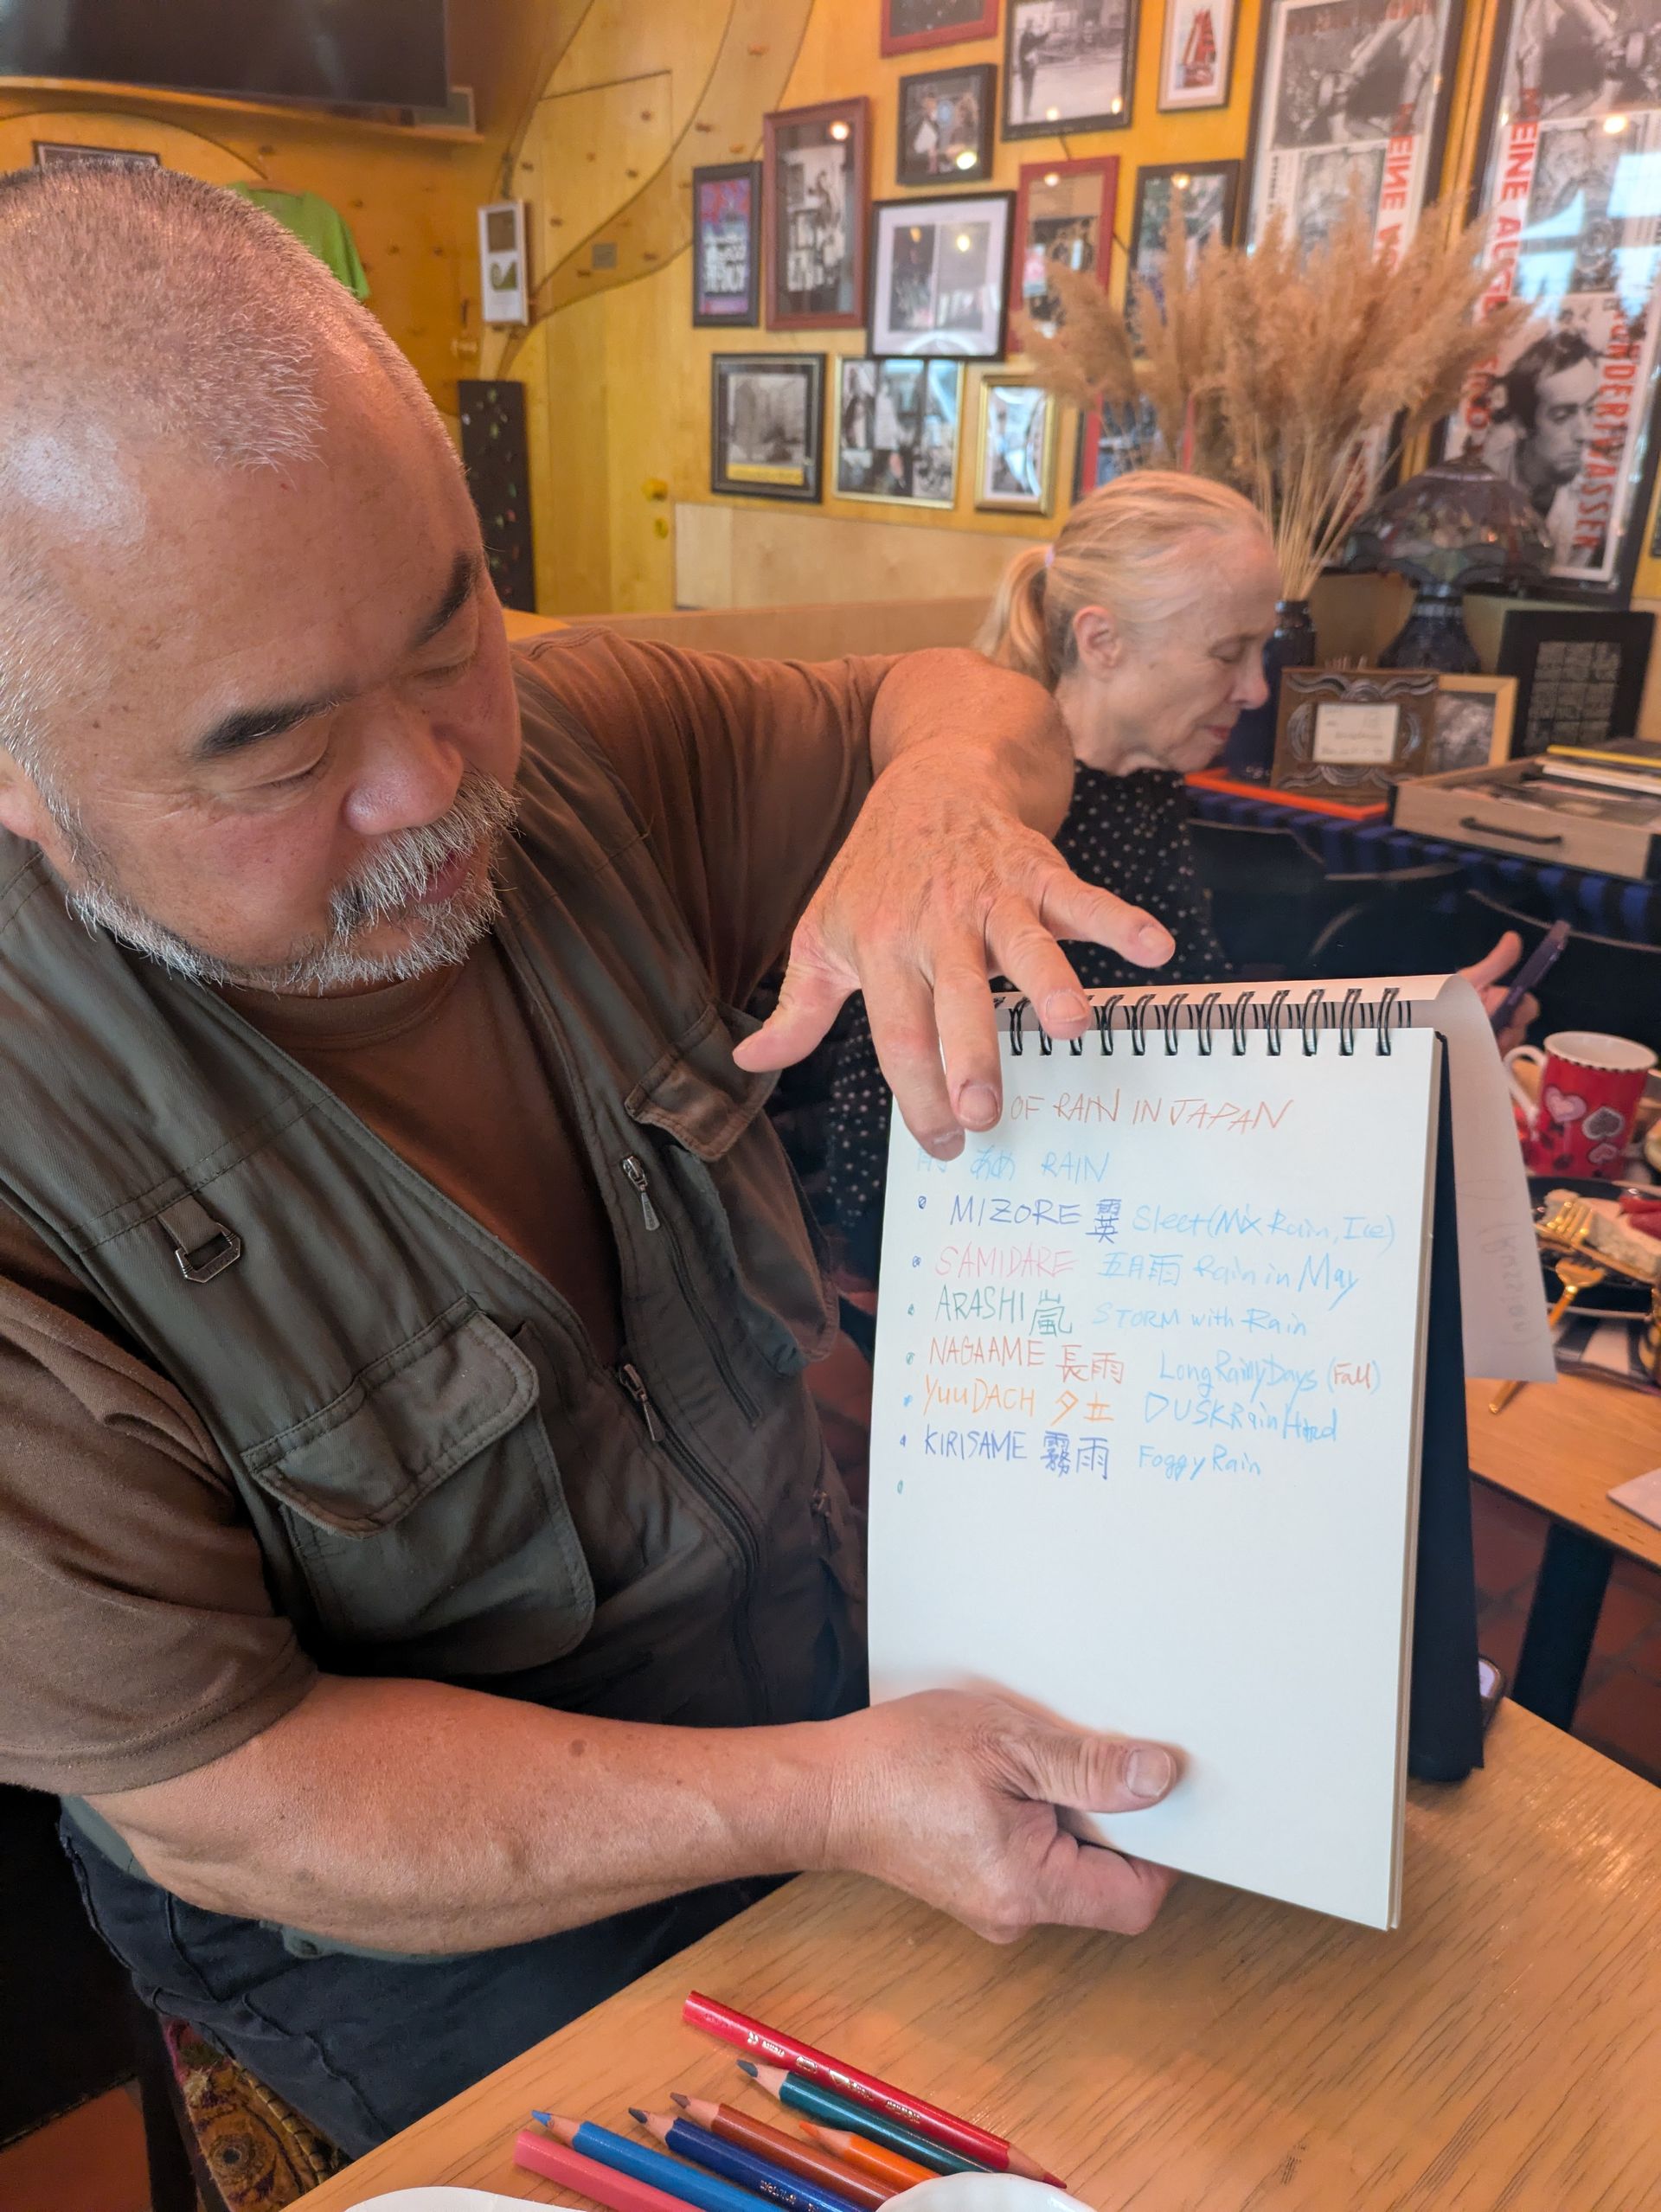 OF RAIN IN JAPAN
雨 あめ RAIN
MIZORE 霙 Sleet (Mix Rain, Ice)
SAMIDARE 五月雨 Rain in May
ARASHI 嵐 STORM with Rain
NAGAAME 長雨 Long Rainy Days (Fall)
YUUDACH 夕立 DUSK Rain Hard
KIRISAME 霧雨 Foggy Rain
MEINE AUGE